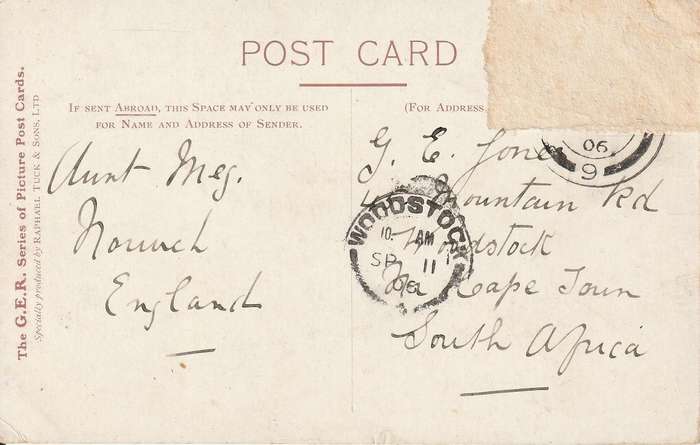 POST CARD
The G.E.R. Series of Picture Post Cards.
Specially produced by RAPHAEL TUCK & SONS, LTD
IF SENT ABROAD, THIS SPACE MAY ONLY BE USED
FOR NAME AND ADDRESS OF SENDER.
Aunt Meg.
Norwich
England
(FOR ADDRESS
G. E. Jones
Mountain Rd
Woodstock
Nr Cape Town
South Africa
WOODSTOCK
10- AM
SP 11
06
06
9